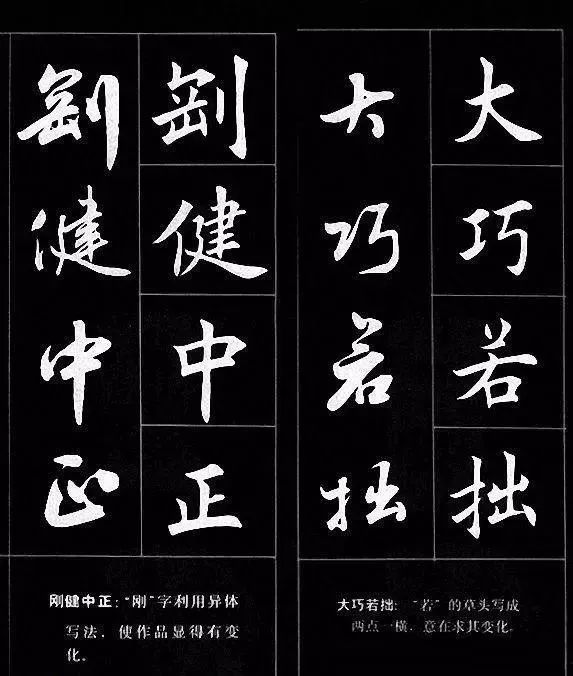 大巧若拙
大巧若拙
大巧若拙：“若”的草头写成
两点一横，意在求其变化。
刚健中正
刚健中正
刚健中正：“刚”字利用异体
写法，使作品显得有变
化。